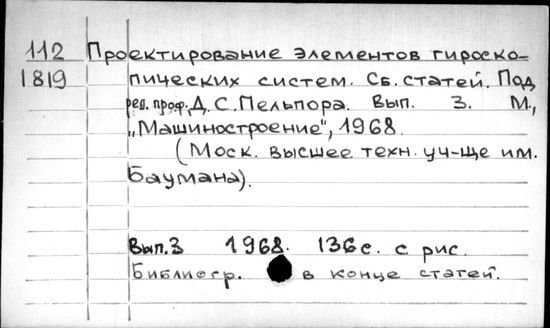 112 Проектирование элементов гироско-
1819 пических систем. Сб. статей. Под
ред. проф. Д. С. Пельпора. Вып. 3. М.,
„Машиностроение", 1968.
(Моск. высшее техн. уч-ще им.
Баумана).
Вып.3 1968. 136 с. с рис.
Библиогр. в конце статей.